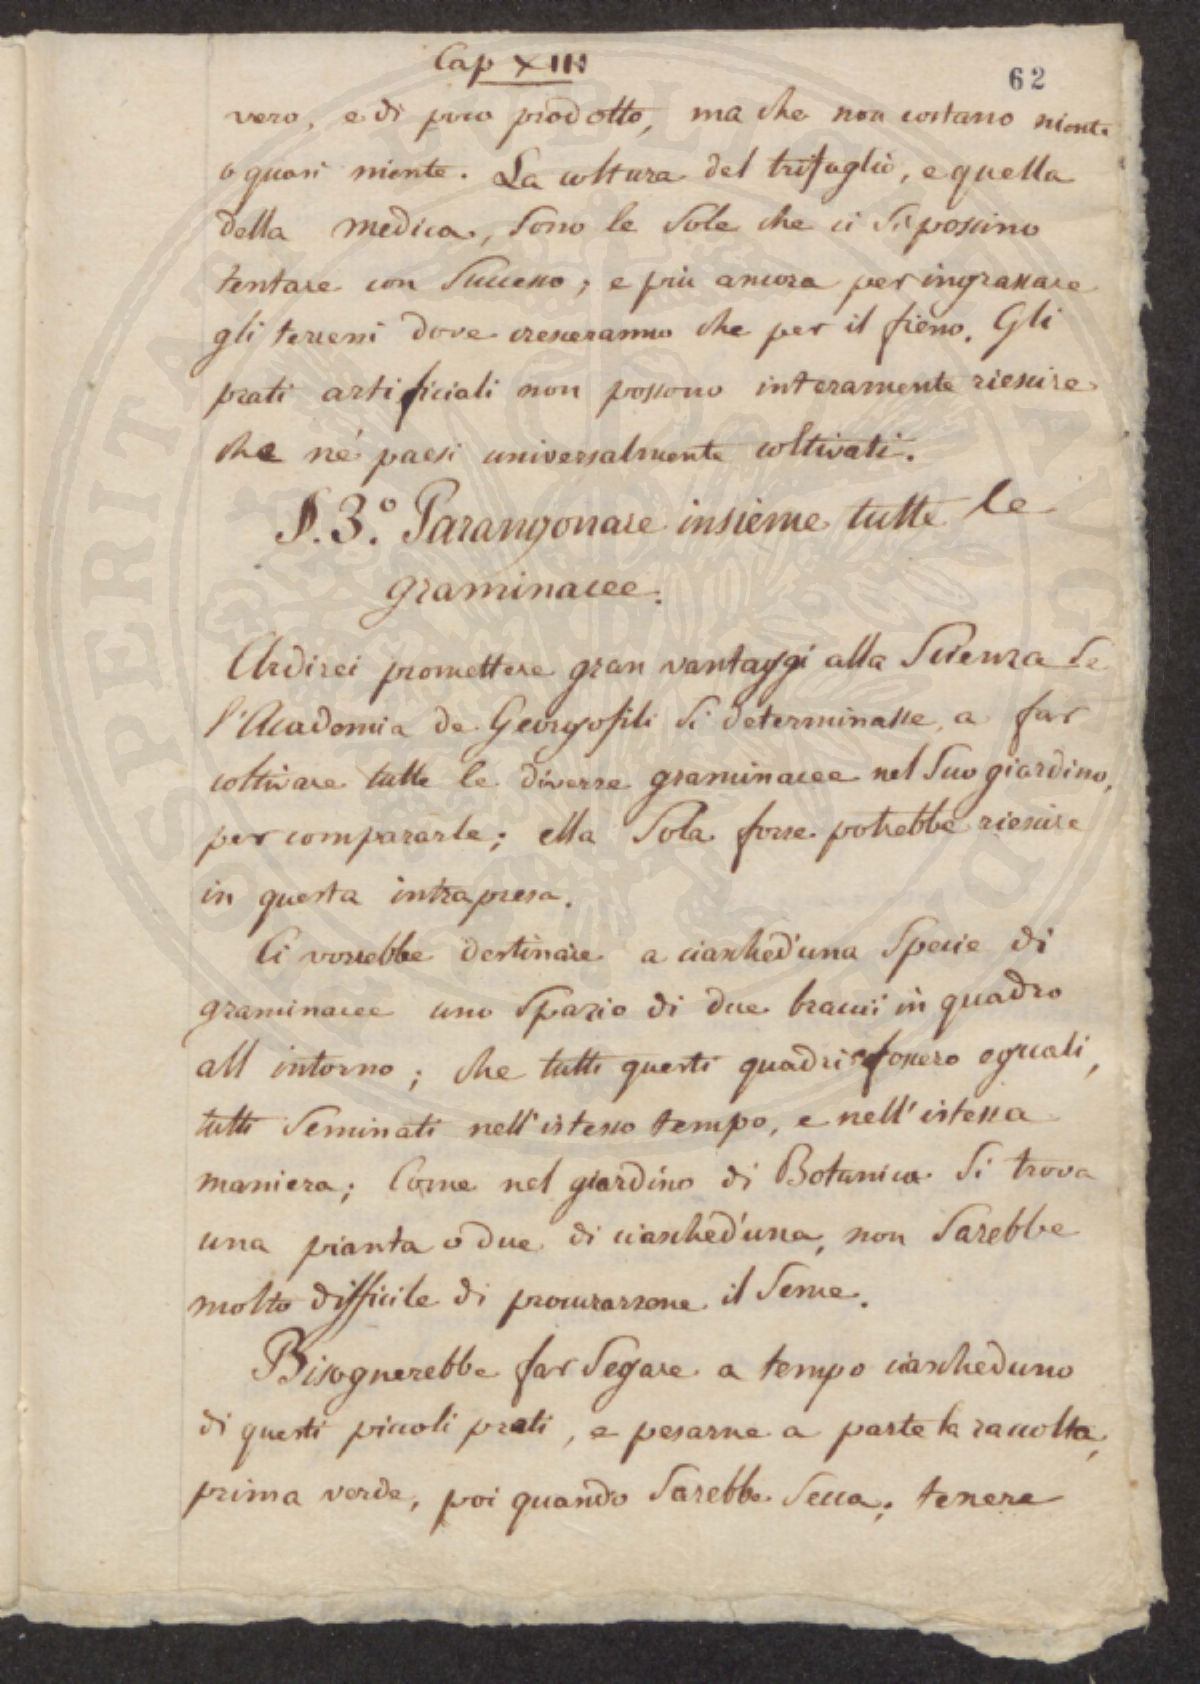 Cap XIII
62
vero, e di poco prodotto, ma che non costano niente
o quasi niente. La coltura del trifoglio, e quella
della medica, sono le sole che ci si possino
tentare con successo; e più ancora per ingrassare
gli terreni dove cresceranno che per il fieno. Gli
prati artificiali non possono interamente riescire
che nè paesi universalmente coltivati.
§. 3.° Parangonare insieme tutte le
graminacee.
Ardirei promettere gran vantaggi alla Scienza se
l'Academia de Georgofili si determinasse, a far
coltivare tutte le diverse graminacee nel suo giardino,
per compararle; ella sola forse potrebbe riescire
in questa intrapresa.
Ci vorrebbe destinare a ciasched'una specie di
graminacee uno spazio di due bracci in quadro
all intorno; che tutti questi quadri fossero eguali,
tutti seminati nell'istesso tempo, e nell'istessa
maniera; Come nel giardino di Botanica si trova
una pianta o due di ciasched'una, non sarebbe
molto difficile di procurarsene il seme.
Bisognerebbe far segare a tempo ciascheduno
di questi piccoli prati, e pesarne a parte la raccolta,
prima verde, poi quando sarebbe secca; tenere
SPERITAT